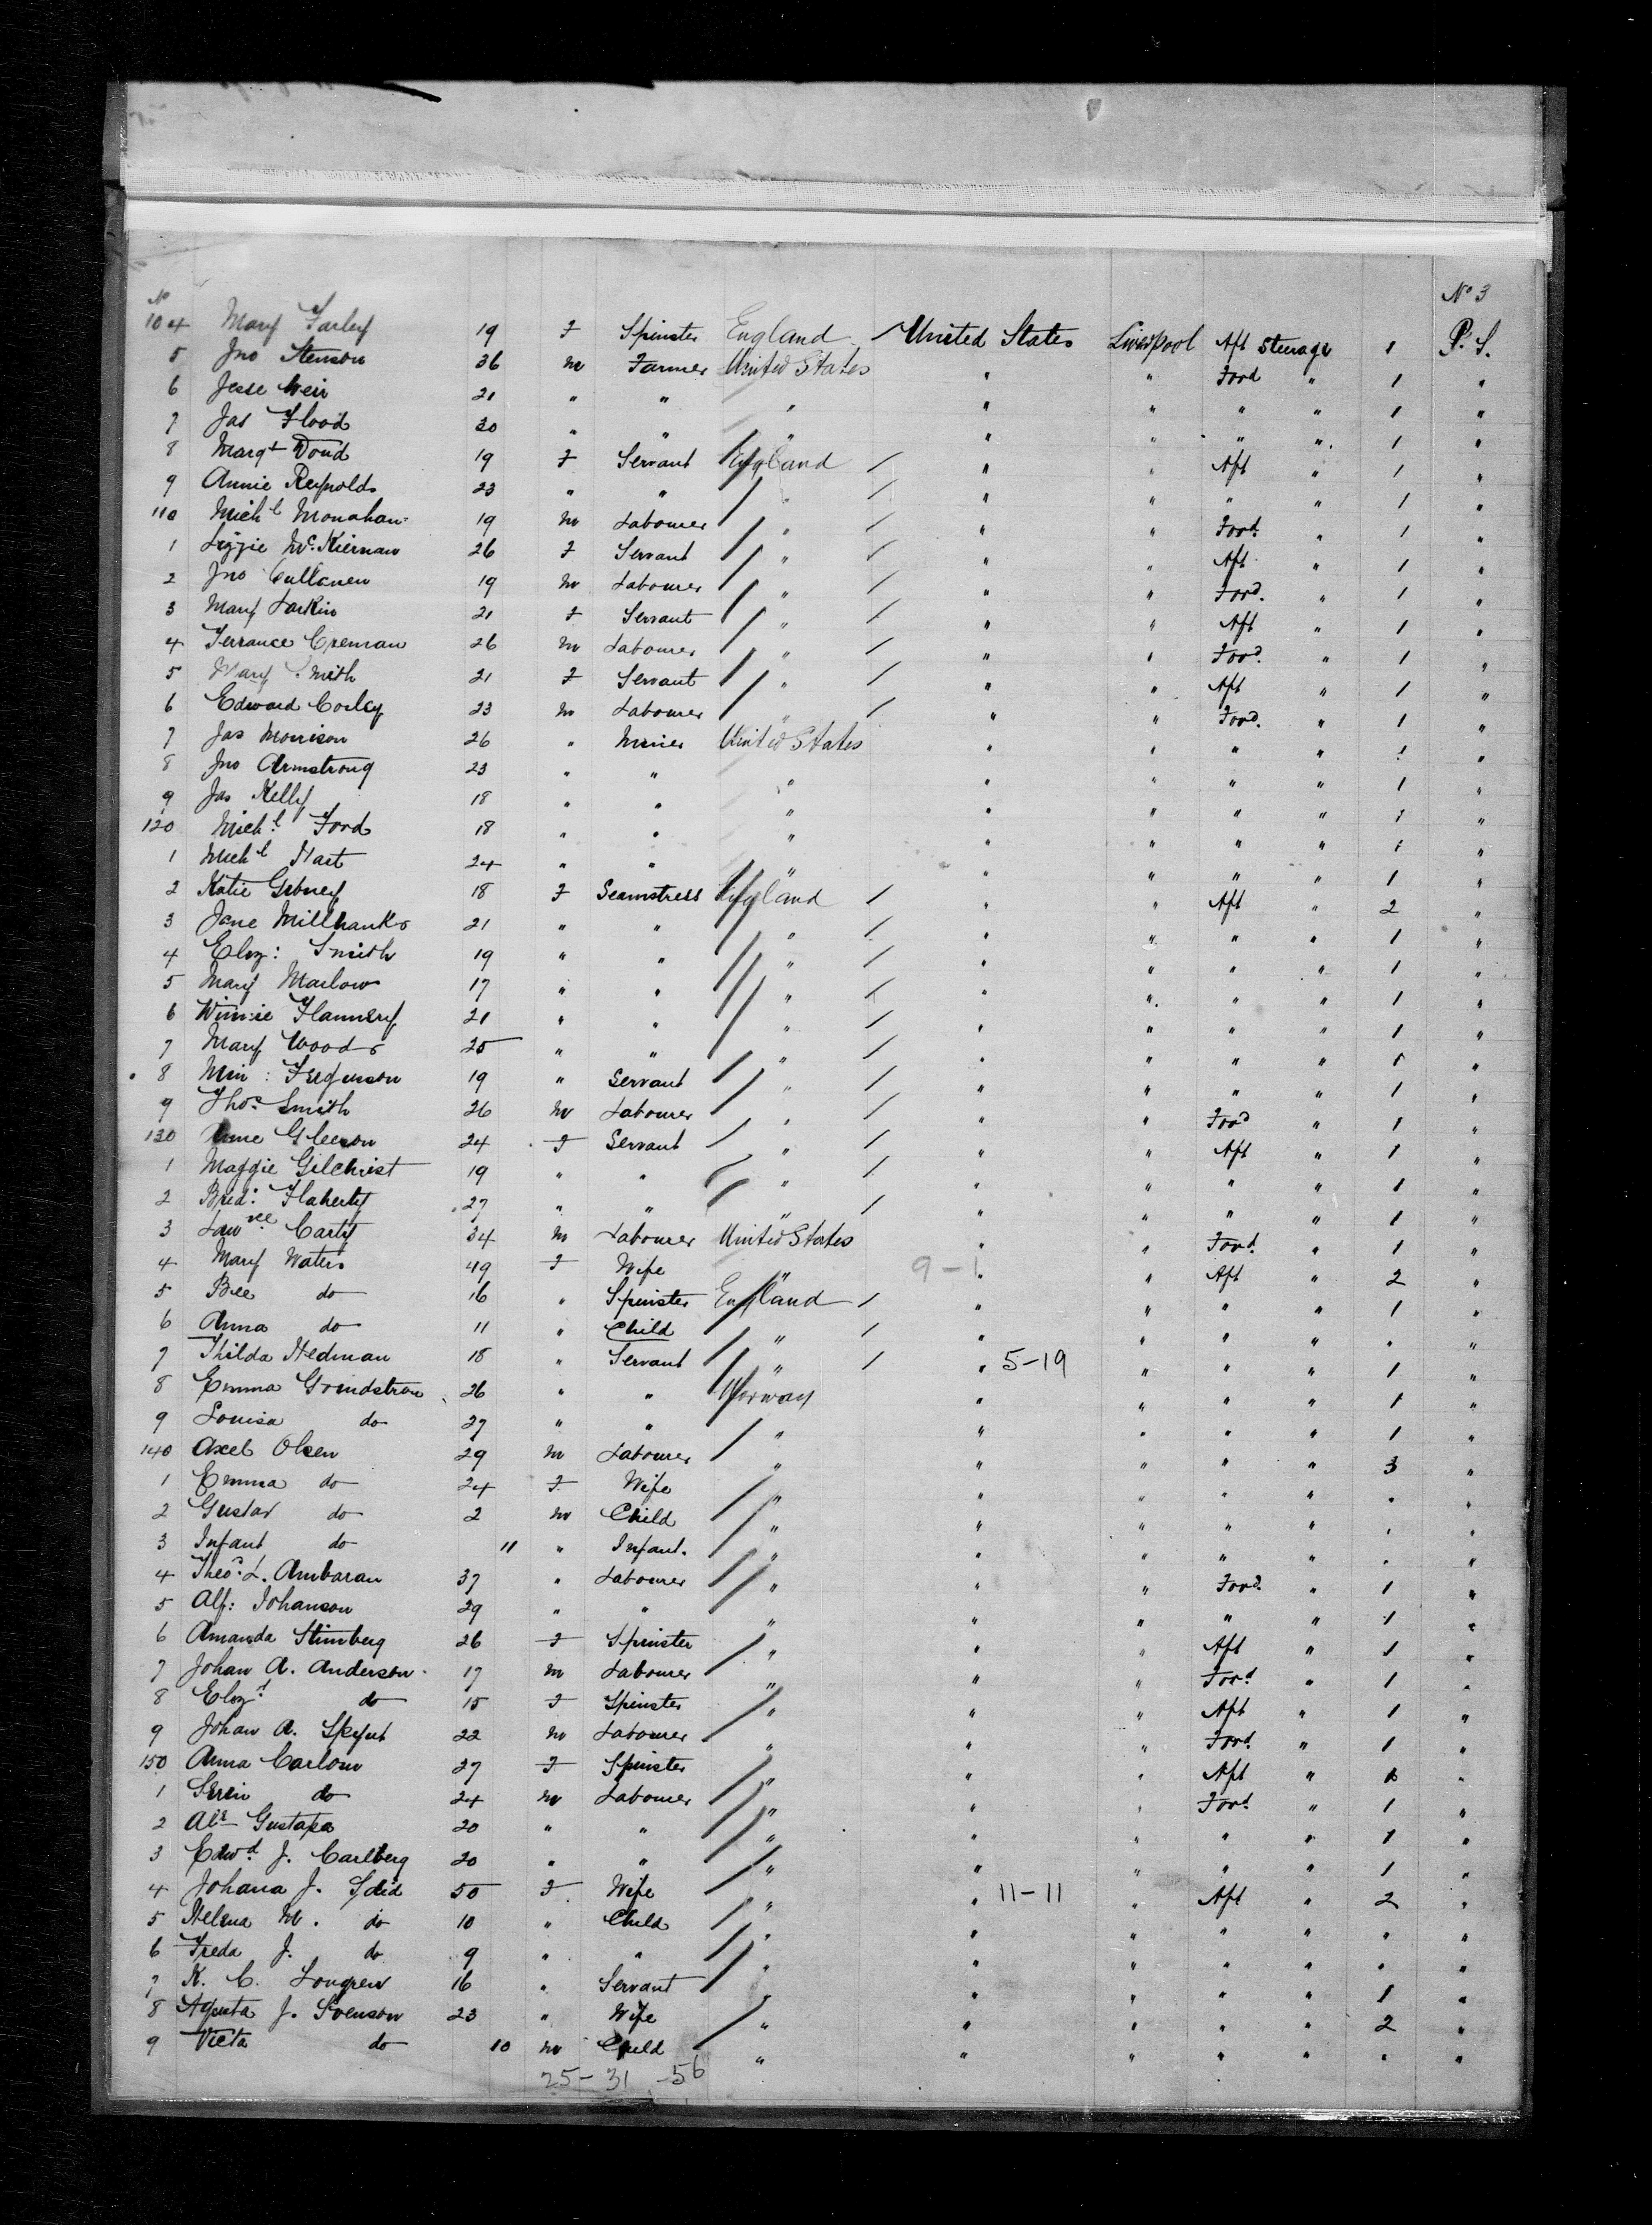 No No 3
104 Mary Farley 19 F Spinster England / United States Liverpool Aft Steerage 1 P.S.
5 Jno Stenson 36 m Farmer United States " " Ford " 1 "
6 Jesse Weir 21 " " " " " " " 1 "
7 Jas Flood 20 " " " " " " " 1 "
8 Margt Doud 19 F Servant England / " " Aft " 1 "
9 Annie Reynolds 23 " " " / " " " " 1 "
110 Michl Monahan 19 m Labourer " / " " Ford " 1 "
1 Lizzie McKiernan 26 F Servant " / " " Aft " 1 "
2 Jno Cullanen 19 m Labourer " / " " Ford. " 1 "
3 Mary Larkin 21 F Servant " / " " Aft " 1 "
4 Terrance Crenan 26 m Labourer " / " " Ford. " 1 "
5 Mary Smith 21 F Servant " / " " Aft " 1 "
6 Edward Corley 23 m Labourer " / " " Ford. " 1 "
7 Jas Morrison 26 " Miner United States " " " " 1 "
8 Jno Armstrong 23 " " " " " " " 1 "
9 Jas Kelly 18 " " " " " " " 1 "
120 Michl Ford 18 " " " " " " " 1 "
1 Michl Hart 24 " " " " " " " 1 "
2 Katie Gibney 18 F Seamstress England / " " Aft " 2 "
3 Jane Millbanks 21 " " " / " " " " 1 "
4 Eliz: Smith 19 " " " / " " " " 1 "
5 Mary Marlow 17 " " " / " " " " 1 "
6 Winnie Flannery 21 " " " / " " " " 1 "
7 Mary Woods 25 " " " / " " " " 1 "
8 Min: Ferguson 19 " Servant " / " " " " 1 "
9 Thos Smith 26 m Labourer " / " " Ford " 1 "
130 Anne Gleeson 24 F Servant " / " " Aft " 1 "
1 Maggie Gilchrist 19 " " " / " " " " 1 "
2 Brid: Flaherty 27 " " " / " " " " 1 "
3 Lawce Carty 34 m Labourer United States " " Ford. " 1 "
4 Mary Waters 49 F Wife " 9-1 " " Aft " 2 "
5 Bee do 16 " Spinster England / " " " " 1 "
6 Anna do 11 " Child " / " " " " " "
7 Thilda Hedman 18 " Servant " / " 5-19 " " " 1 "
8 Emma Grindstrom 26 " " Norway " " " " 1 "
9 Louisa do 27 " " " " " " " 1 "
140 Axel Olsen 29 m Labourer " " " " " 3 "
1 Emma do 24 F Wife " " " " " " "
2 Gustav do 2 m Child " " " " " " "
3 Infant do 11 " Infant. " " " " " " "
4 Theo: L. Ambaran 37 " Labourer " " " Ford. " 1 "
5 Alf: Johanson 29 " " " " " " " 1 "
6 Amanda Stimberg 26 F Spinster " " " Aft " 1 "
7 Johan A. Anderson 17 m Labourer " " " Ford " 1 "
8 Elizt do 15 F Spinster " " " Aft " 1 "
9 Johan A. 22 m Labourer " " " Ford. " 1 "
150 Anna Carlson 27 F Spinster " " " Aft " 1 "
1 do 24 m Labourer " " " Ford " 1 "
2 Gustafa 20 " " " " " " " 1 "
3 Edwd J. Carlberg 20 " " " " " " " 1 "
4 Johana J. 50 F Wife " " 11-11 " Aft " 2 "
5 Helena M. do 10 " Child " " " " " " "
6 Freda J. do 9 " " " " " " " " "
7 K. C. Longren 16 " Servant " " " " " 1 "
8 Agusta J. Svenson 23 " Wife " " " " " 2 "
9 Victa do 10 m Child " " " " " " "
25-31-56